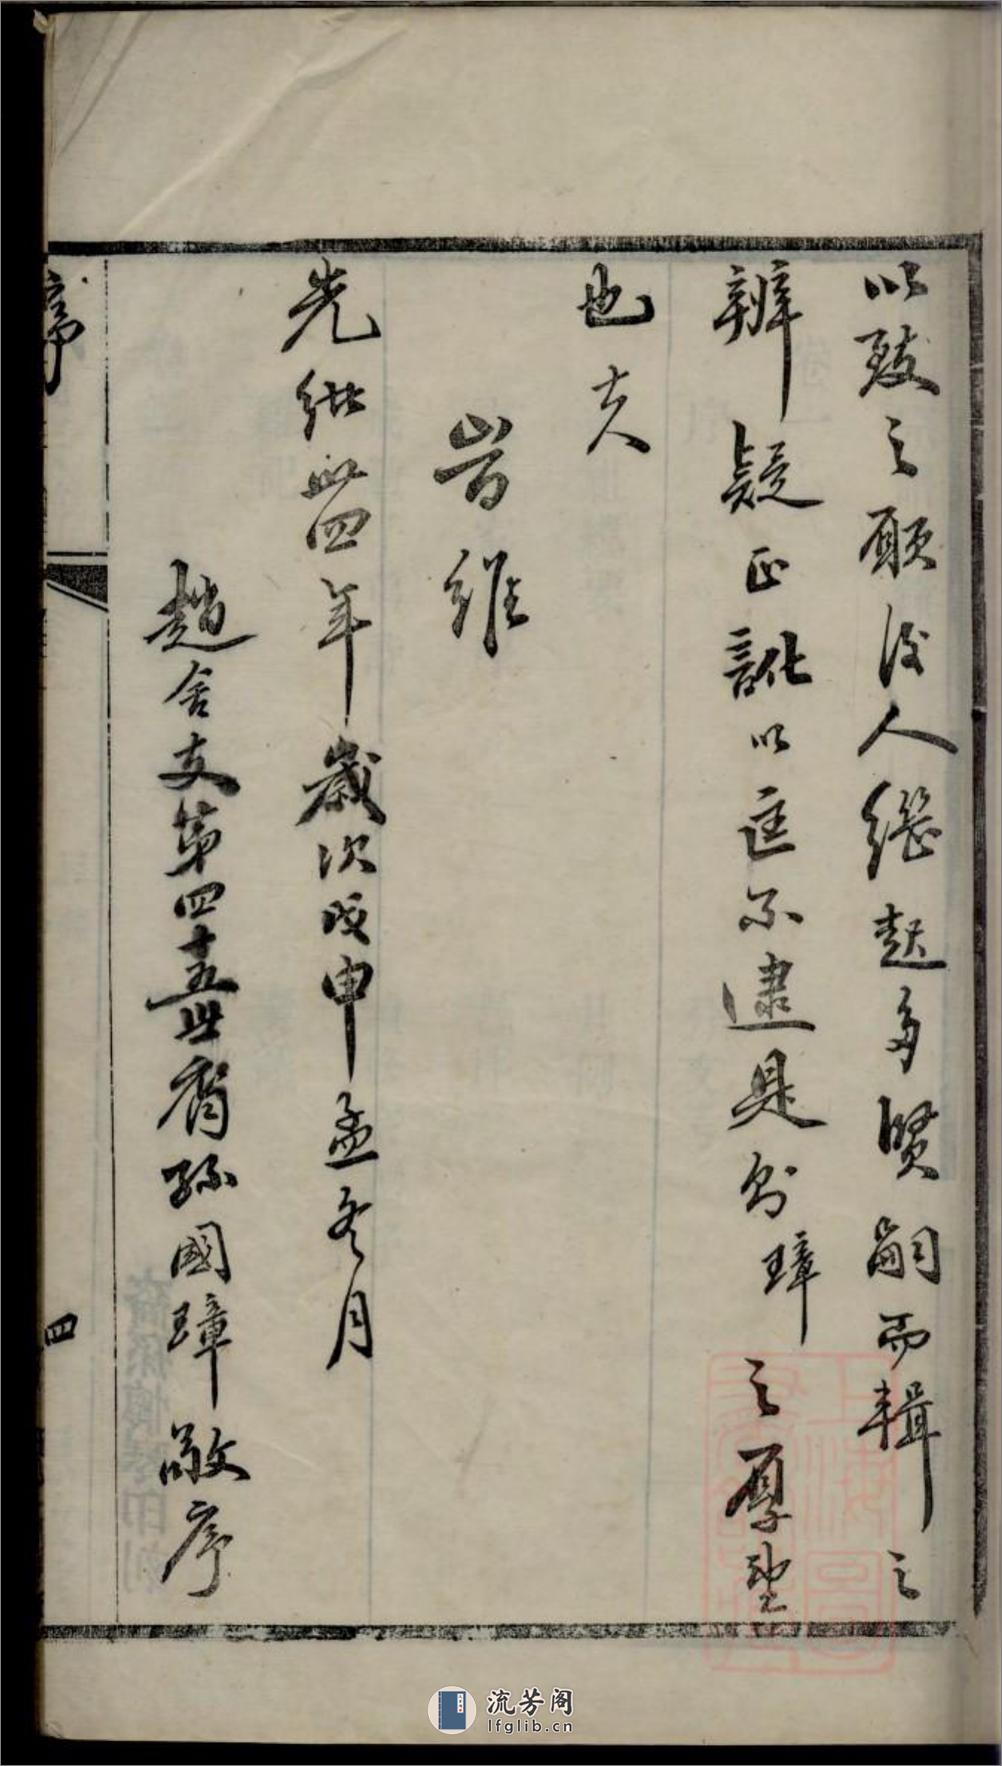 以致之願後人繼起多賢嗣而輯之
辨疑正訛以匡不逮是則璋之厚望
也夫
峕維
光緒卅四年歲次戊申孟冬月
趙舍支第四十五世裔孫國璋敬序
序
四
流芳阁
lfglib.cn